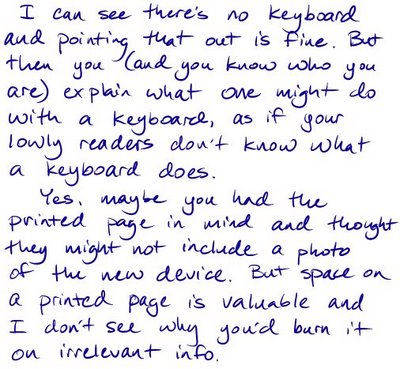 I can see there's no keyboard
and pointing that out is fine. But
then you (and you know who you
are) explain what one might do
with a keyboard, as if your
lowly readers don't know what
a keyboard does.
Yes, maybe you had the
printed page in mind and thought
they might not include a photo
of the new device. But space on
a printed page is valuable and
I don't see why you'd burn it
on irrelevant info.